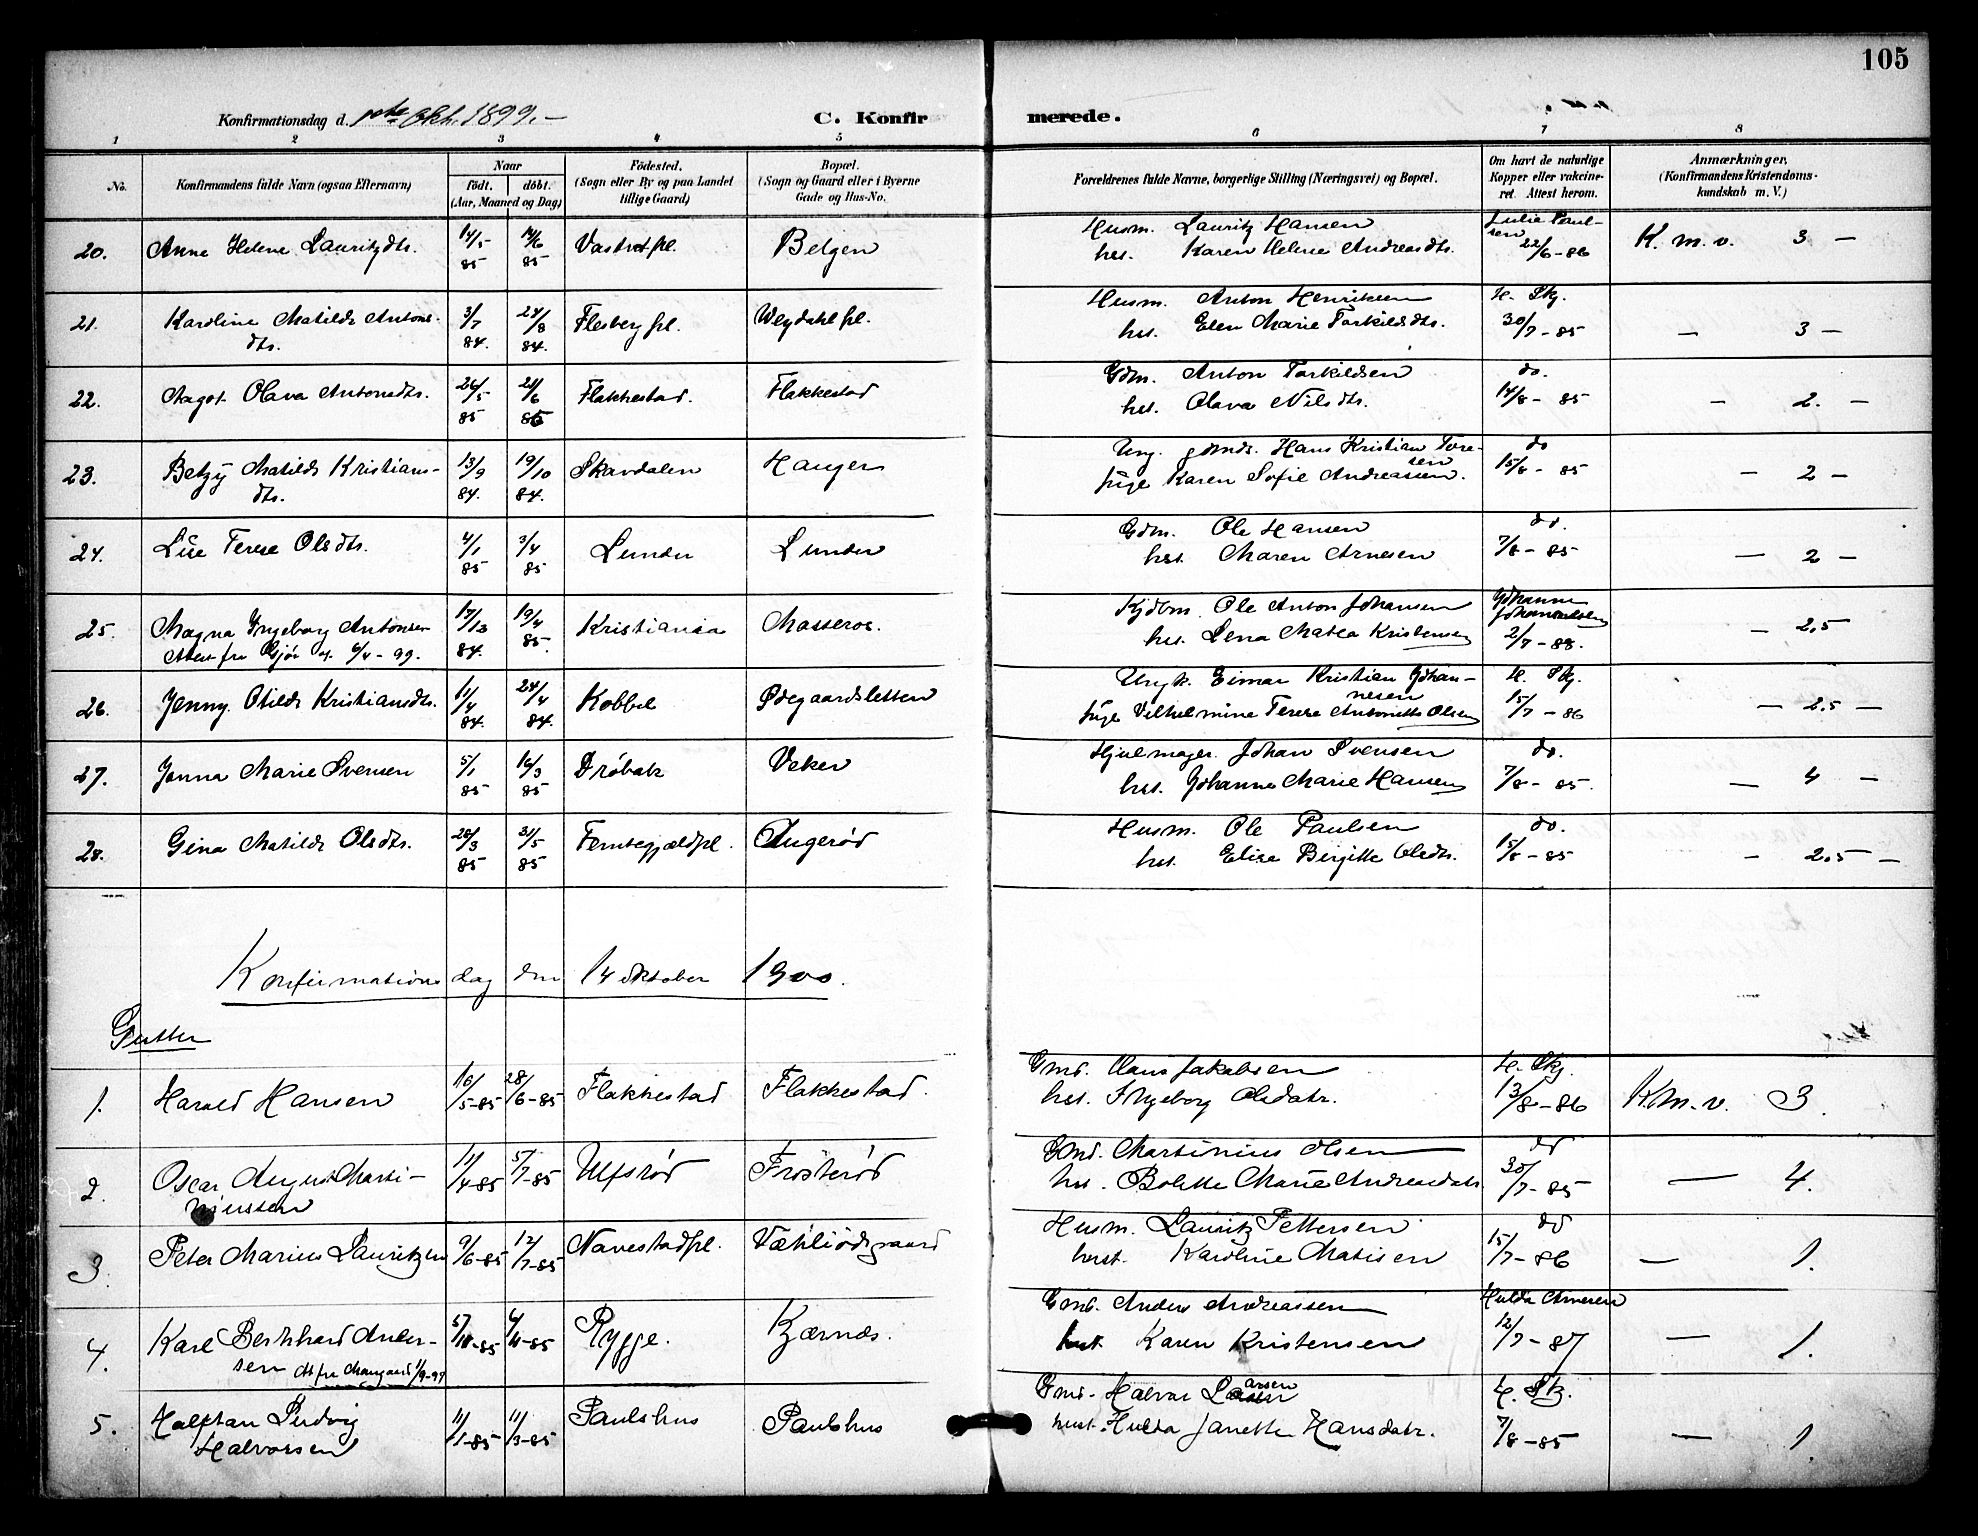 105
Konfirmationsdag d. 1ste Okt. 1899. –
C. Konfirmerede.
1 2 3 4 5 6 7 8
No. Konfirmandens fulde Navn (ogsaa Efternavn) Naar födt. döbt. (Aar, Maaned og Dag) Födested. (Sogn eller By og paa Landet tillige Gaard) Bopæl. (Sogn og Gaard eller i Byerne Gade og Hus-No. Forældrenes fulde Navne, borgerlige Stilling (Næringsvei) og Bopæl. Om havt de naturlige Kopper eller vakcineret. Attest herom. Anmærkninger. (Konfirmandens Kristendomskundskab m. V.)
20. Anne Helene Lauritzdtr. 14/5 85 14/6 85 Belgen Husm. Lauritz Hansen Julie Paulsen K. m. v. 3 –
hst. Karen Helene Andreasdtr. 22/6 – 86
21. Karoline Matilde Antonsdtr. 3/7 84. 24/8 84. Flesberg pl. Weydahl pl. Husm. Anton Henriksen H. Skj. – 3 –
hst. Elen Marie Torkildsdtr. 30/7 – 85
22. Aagot Olava Antonsdtr. 26/5 85 21/6 85 Flakkestad. Flakkestad Gdm. Anton Torkildsen do. – 2. –
hst. Olava Nilsdtr. 14/8 – 85
23. Betzy Matilde Kristiansdtr. 13/9 84. 19/10 84. Skavdalen Haugen Ung. gdmds. Hans Kristian Toresen do – 2 –
pige Karen Sofie Andreassen. 15/8 – 85
24. Lise Terese Olsdtr. 4/1 85 3/4 85 Lunder Lunder Gdm. Ole Hansen do. – 2 –
hst. Maren Arnesen 7/8 – 85
25. Magna Ingeborg Antonsen 17/12 84. 19/4 85. Kristiania Masserøe. Kjøbm. Ole Anton Johansen Johanne – 2,5
Attest fra 6/4 – 99. hst. Lena Matea Kristensen 2/7 – 88.
26. Jenny Otilde Kristiansdtr. 11/4 84. 24/4 84. Kobbel Ødegaardsletten Ungk. Eimar Kristian Johannesen H. Skj. – 2,5 –
pige Vilhelmine Terese Antonette Olsen 15/7 – 86
27. Janna Marie Svensen 5/1 85 16/3 85 Drøbak Veker Hjulmager. Johan Svensen do. – 4 –
hst. Johanne Marie Hansen 7/8 – 85.
28. Gina Matilde Olsdtr. 28/3 85 31/5 85 Augerød Husm. Ole Paulsen do. – 2,5 –
hst. Elise Birgitte Olsdtr. 15/8 – 85
Konfirmations dag den 14 oktober 1900.
Gutter
1. Harald Hansen 16/5-85 28/6-85 Flakkestad Flakkestad. Gmd. Hans Jakobsen H. Skj. K. m. v. 3.
hst. Ingeborg Olsdatr. 13/8 – 86
2. Oscar August Martiniussen 11/4-85 5/7-85 Ulfsrød Frösterød Gmd. Martinius Olsen do – 4.
hst. Bolette Marie Andreasdatr 30/7 – 85
3. Peter Marius Lauritzen 9/6-85 12/7-85 Navestadpl. Husm. Lauritz Pettersen do – 1.
hust. Karoline Matisen 15/7 – 86
4. Karl Bernhard Andersen 5/10-85 Rygge. Kjærnes. Gmd. Anders Andreassen Hulda Arnesen – 1.
hust. Karen Kristensen 12/7 – 87
5. Halfdan Ludvig Halvorsen 11/1-85 11/3-85 Paulshus Paulshus Gmd. Halvor Larsen H. Skj. – 1.
hust. Hulda Janette Hansdatr. 7/8 – 85